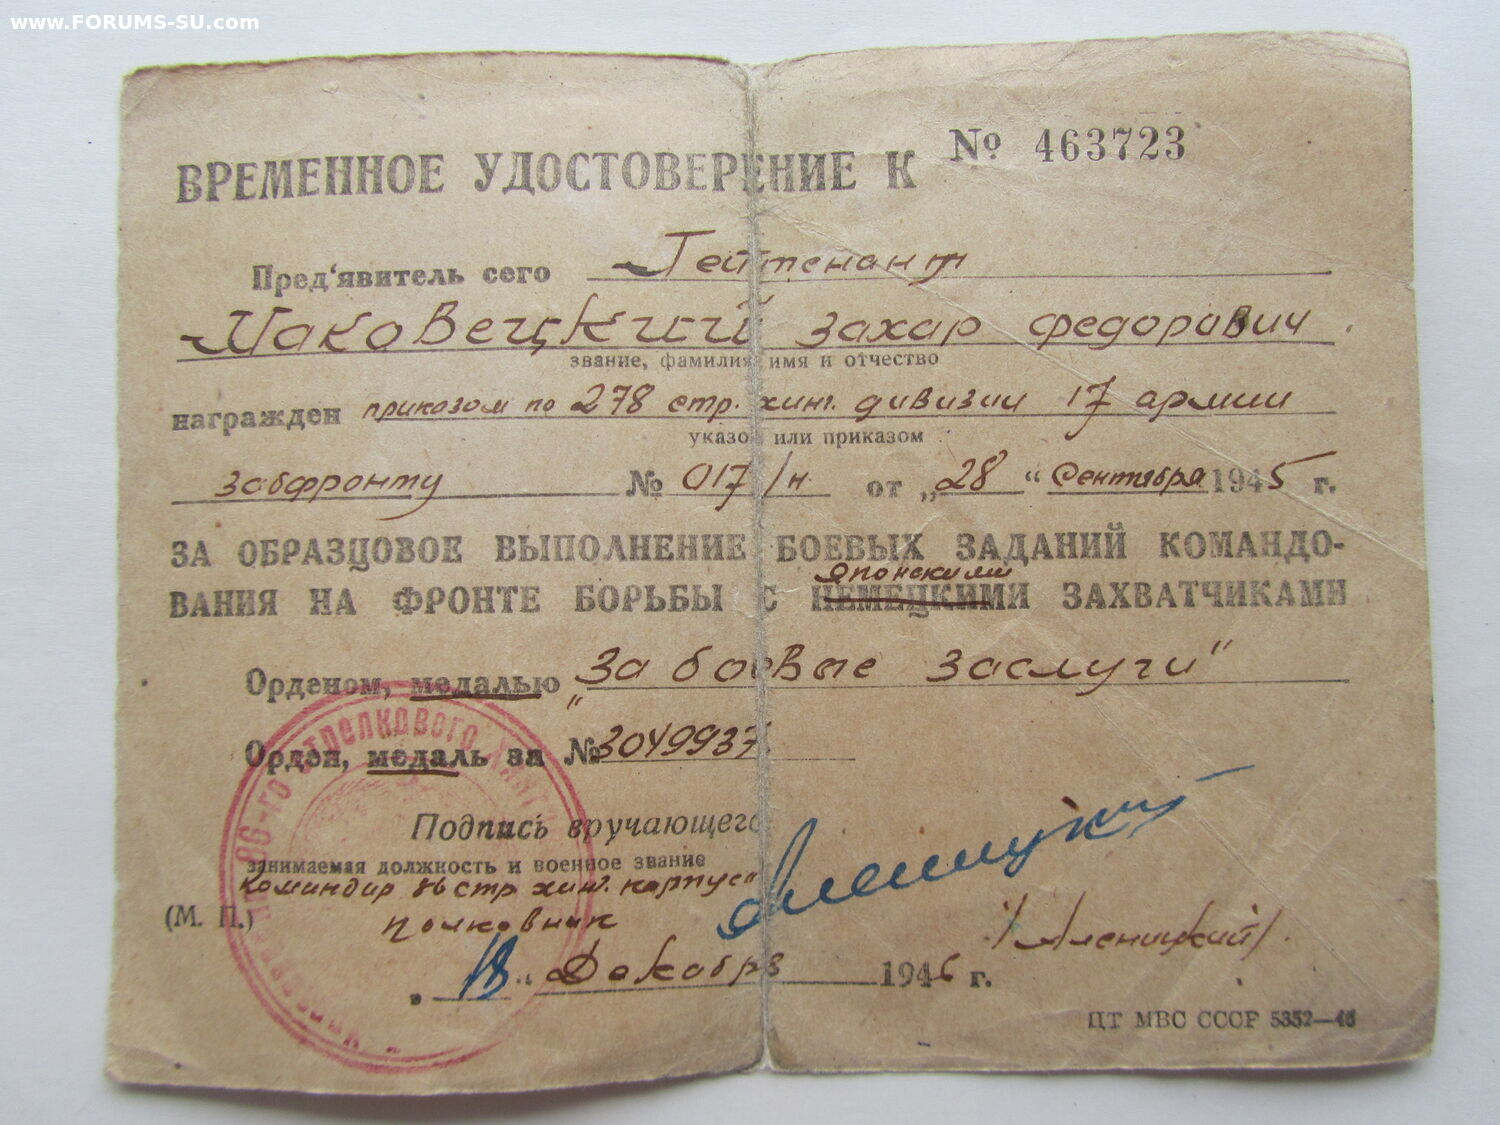 www.FORUMS-SU.com
ВРЕМЕННОЕ УДОСТОВЕРЕНИЕ К № 463723
Пред'явитель сего Лейтенант
Маковецкий Захар Федорович
звание, фамилия имя и отчество
награжден приказом по 278 стр. хинг. дивизии 17 армии
указом или приказом
забфронту № 017/н от „28“ Сентября 1945 г.
ЗА ОБРАЗЦОВОЕ ВЫПОЛНЕНИЕ БОЕВЫХ ЗАДАНИЙ КОМАНДО-
японскими
ВАНИЯ НА ФРОНТЕ БОРЬБЫ С НЕМЕЦКИМИ ЗАХВАТЧИКАМИ
Орденом, медалью „За боевые заслуги"
Орден, медаль за № 3049937
Подпись вручающего
занимаемая должность и военное звание
командир 86 стр хинг. корпуса
(М. П.) полковник /Аленицкий/.
„18" Декабря 1946 г.
ЦТ МВС СССР 5352—46
86-го стрелкового